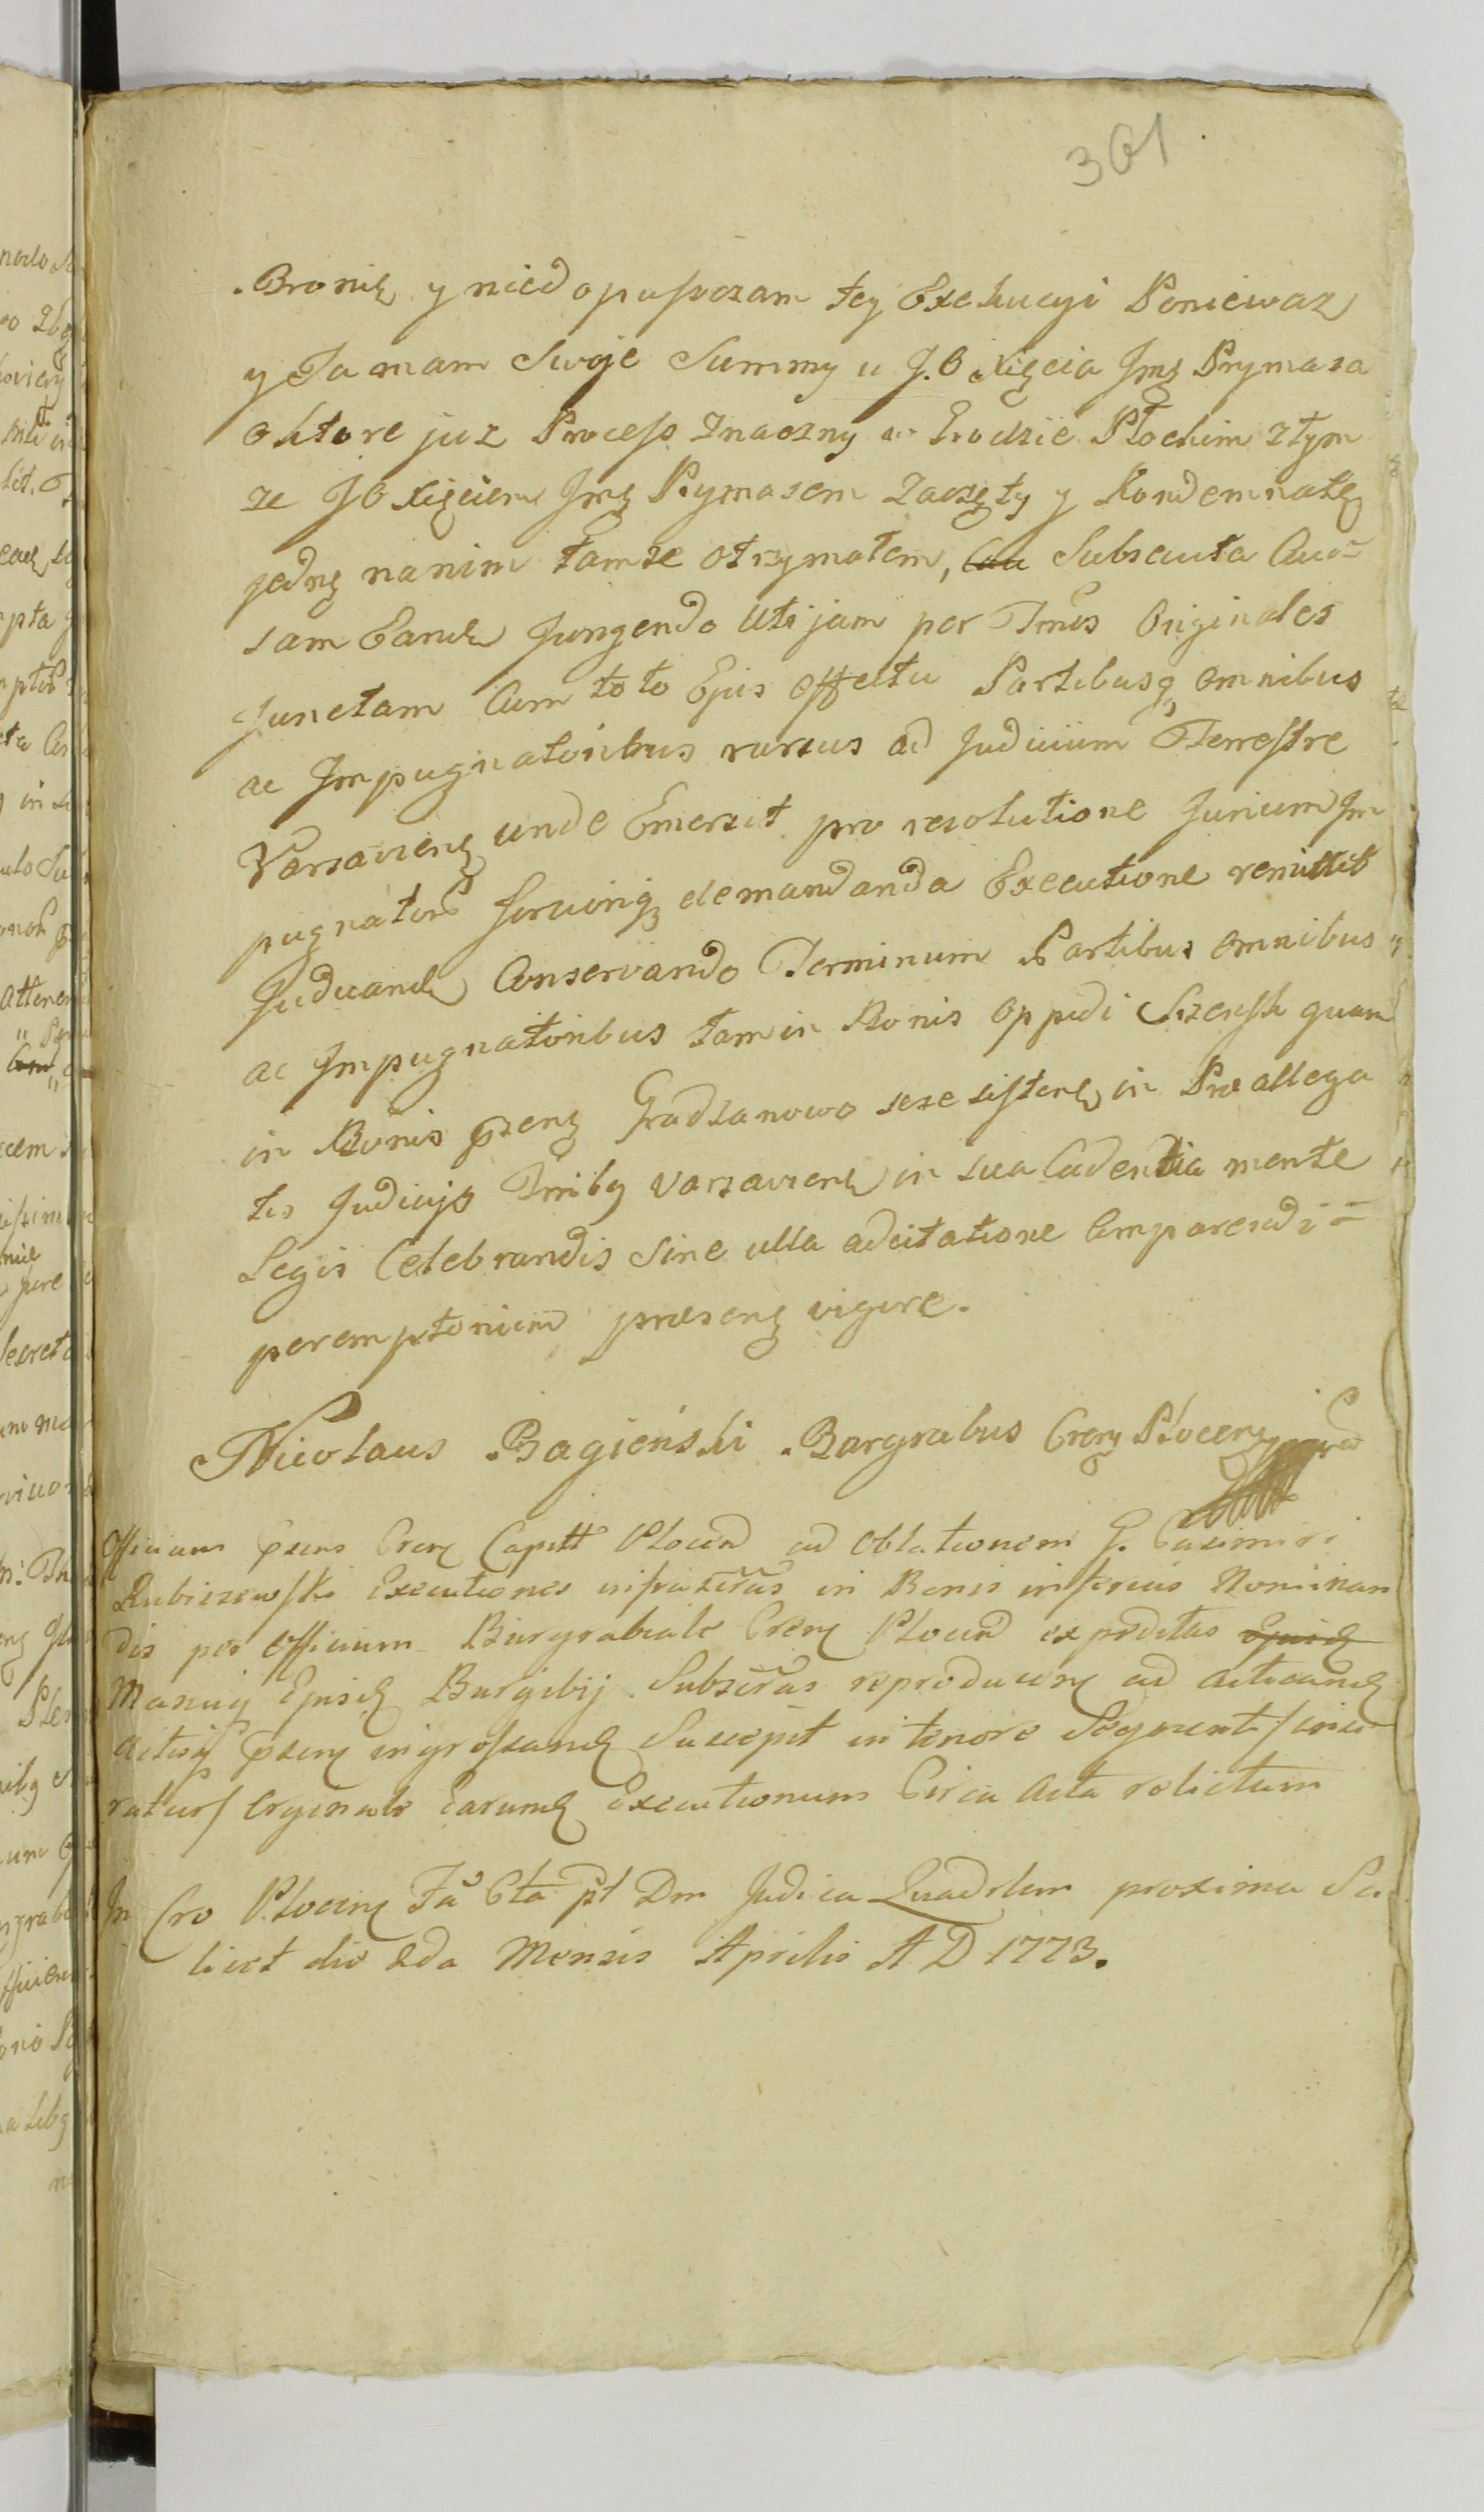 361
Bronię y niedopuszczam tey Exekucyi Poniewaz
y Ja mam Swoje Summy u J.O Xięcia Jmę Prymasa
o ktore juz Process Znaczny w Grodzie Płockim z tym
ze JO Xięciem Jmę Prymasem Zaczęty y Kondemnatę
jednę nanim tamze otrzymałem, Subsecuta Cau=
sam Eand Jungendo Uti jam per Tmos Originales
Junctam Cum toto Ejus effectu Partibusq omnibus
ac Impugnatoribus rursus ad Judicium Terrestre
Varsavienę unde Emersit pro resolutione Jurium Im
pugnator servinq demandanda Executione remittit
Judicand Conservando Terminum Partibus omnibus
ac Impugnatoribus tam in Bonis oppidi Szensk quam
in Bonis pzenę Gradzanowo sese sisten in Praeallega
tis Judicijs Tmibq Varsavien in sua Cadentia mente
Legis Celebrandis Sine ulla adcitatione Comparendi=
peremptorium praesenę vigore.
Nicolaus Bagieński Burgrabus Crenę Płocenę
Officium pzens Crenę Capitt Plocen ad oblationem G. Casimiri
Rubiszewski Executiones infrascras in Bonis inferius Nominan
dis per Officium Burgrabiale Crenę Plocen expeditas Ejusd
Manuq Ejusd Burgrbij Subscras reproducen ad acticand
Actisq pzenę ingrossand Suscepit in tenore Sequenti /inse
ratur/ Orginale Earumd Executionum Circa Acta relictum
In Cro Plocenę Fa 6ta pt Dm Judica Quadrlem proxima Sci
licet die 2da Mensis Aprilis A D 1773.